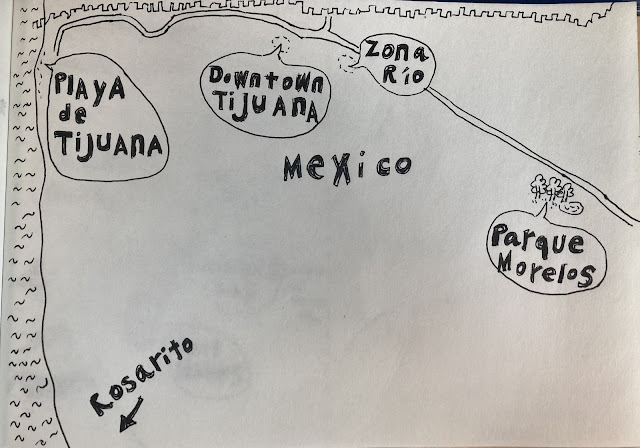 Zona
Río
Downtown
TiJUANA
PlAyA
de
TiJUANA
MeXico
Parque
Morelos
Rosarito